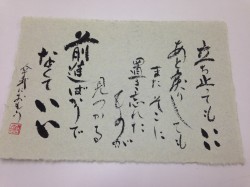 立ち止ってもいい
あと戻りしても
またそこに
置き忘れた
ものが
見つかる
前進ばかりで
なくていい